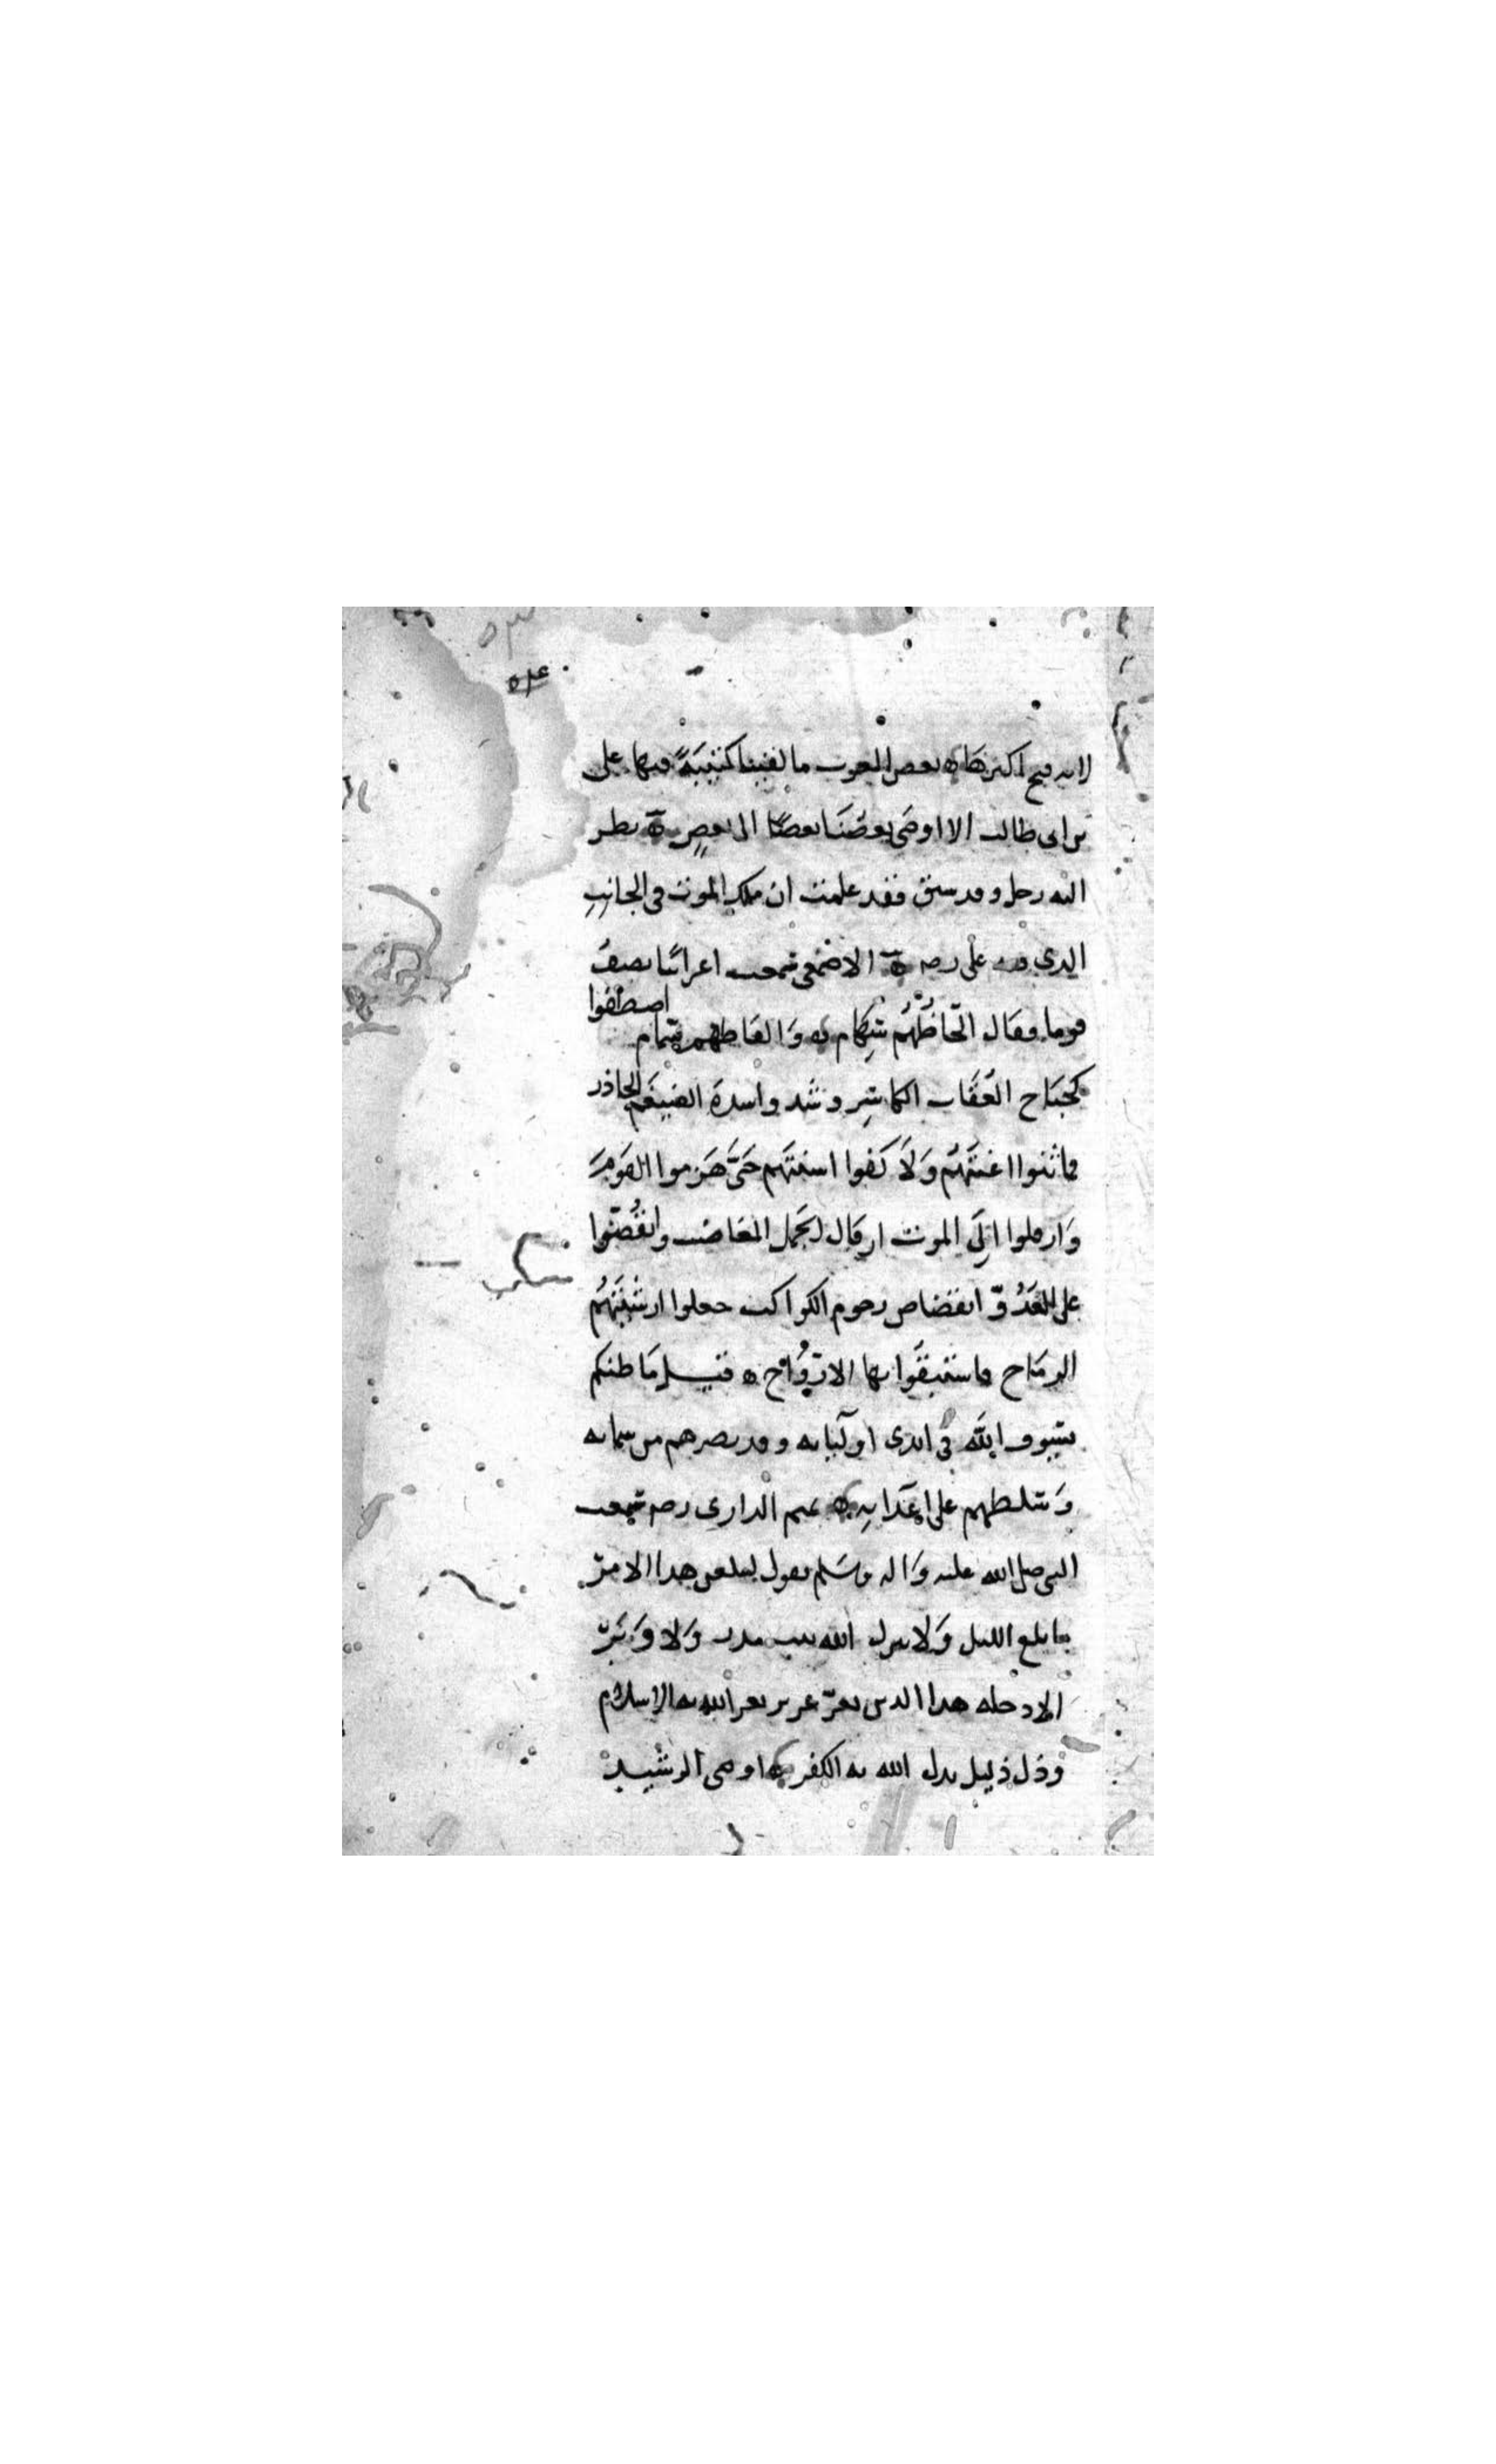 لانه فتح اكثرها ه بعض العرب ما لقينا كتيبة فيها على
بن ابى طالب الا اوصى بعضنا بعضا الى بعض ه نظر
اليه رجل وقد شق فقد علمت ان ملك الموت فى الجانب
الذى فيه على رضه ه الاصمعى سمعت اعرابيا يصف
قوما فقال الحاظهم سهام ه والفاظهم سمام اصطفوا
كجناح العقاب الكاسر وشدوا شدة الضيغم الحاذر
فما ثنوا اعنتهم ولا كفوا اسنتهم حتى هزموا القوم
وارقلوا الى الموت ارقال الجمل المصاعب وانقضوا
على العدو انقضاض رجوم الكواكب جعلوا ارشيتهم
الرماح فاستقوا بها الارواح ه قيل ما ظنكم
بسيوف الله فى ايدى اوليائه وقد نصرهم من سمائه
وسلطهم على اعدائه ه تميم الدارى رضه سمعت
النبى صلى الله عليه واله وسلم يقول ليبلغن هذا الامر
ما بلغ الليل ولا يترك الله بيت مدر ولا وبر
الا دخله هذا الدين بعز عزيز يعز الله به الاسلام
وذل ذليل يذل الله به الكفر ه اوصى الرشيد